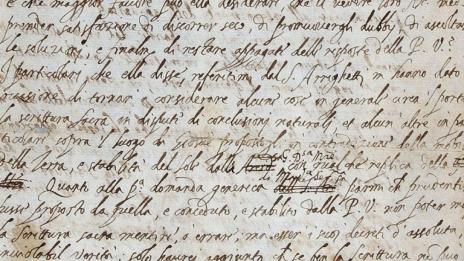 e che maggior favore può ella desiderare che il vedere loro
prender satisfazione di discorrer seco, di promuovergli dubbi, di ascoltar
le soluzioni, e finalm. di restare appagati dell risposte della P. V.
I particolari che ella disse, referitimi dal S. Arrighetti, m hanno dato
occasione di tornar à considerare alcune cose in generale circa 'l portar
la scrittura sacra in dispute di conclusioni naturali, et alcun' altre in par
ticolare sopra 'l luogo di Giosue propostogli, contradizione della mobi
della terra, e stabilità del Sole dalla Gran D.ssa M.re che replica della
Quanto alla p.a domanda generica parmi ch prudentiss
fussi proposto da quella, e conceduto, e stabilito dalla P. V. non poter mai
la scrittura sacra mentire, ò errare, ma esser i suoi decreti d' assoluta,
inviolabil verità, solo haurei aggiunto, ch se ben la scrittura non può